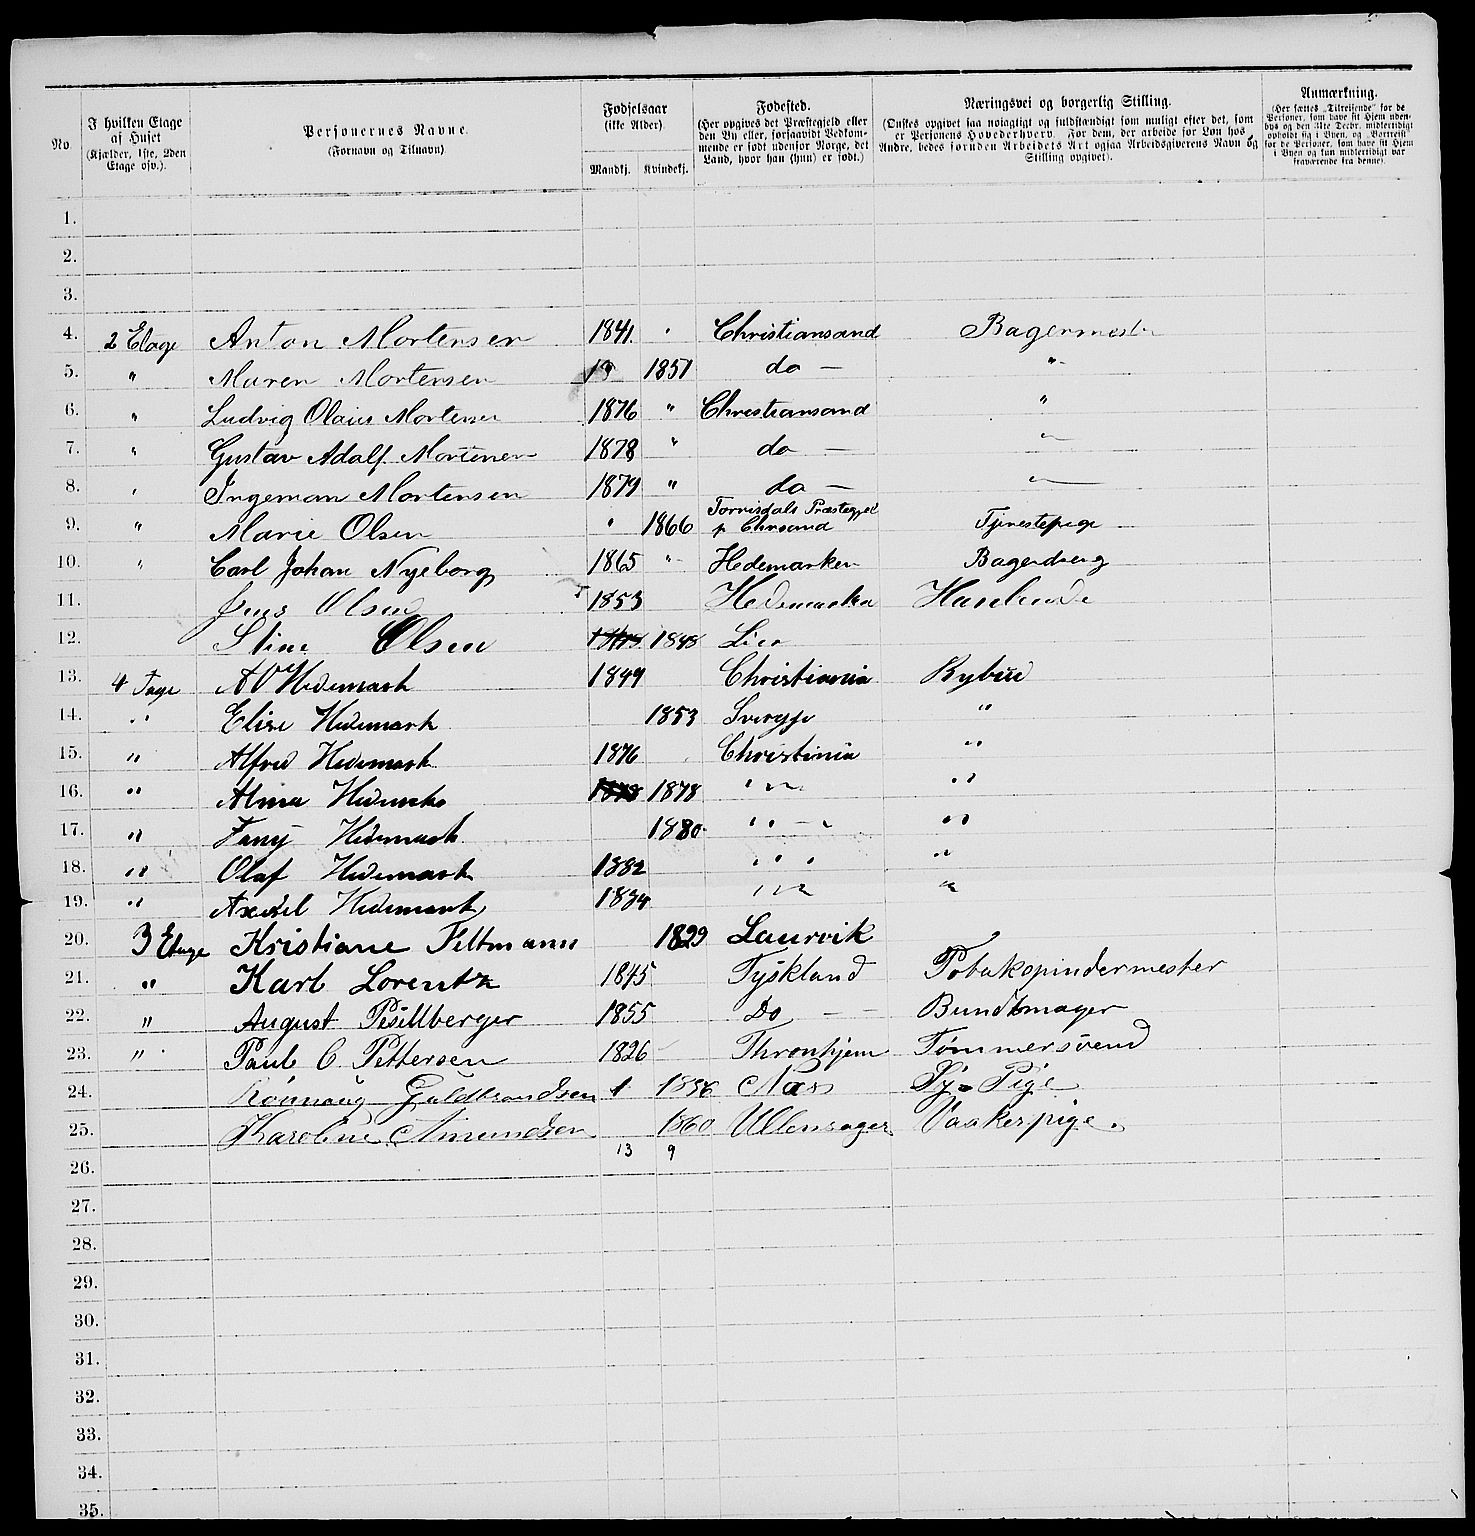 No. | I hvilken Etage af Huset (Kjælder, 1ste, 2den Etage osv.). | Personernes Navne. (Fornavn og Tilnavn) | Fødselsaar (ikke Alder) Mandkj. | Kvindekj. | Fødested. (Her opgives det Præstegjeld eller den By eller, forsaavidt Vedkommende er født udenfor Norge, det Land, hvor han (hun) er født.) | Næringsvei og borgerlig Stilling. (Ønskes opgivet saa nøiagtigt og fuldstændigt som muligt efter det, som er Personens Hovederhverv. For dem, der arbeide for Løn hos Andre, bedes foruden Arbeidets Art ogsaa Arbeidsgiverens Navn og Stilling opgivet). | Anmærkning. (Her sættes „Tilreisende" for de Personer, som have sit Hjem udenbys og den 31te Decbr. midlertidigt opholdt sig i Byen, og „Bortreist" for de Personer, som have sit Hjem i Byen og kun midlertidigt var fraværende fra denne).
1.
2.
3.
4. 2 Etage Anton Mortensen 1841. " Christiansand Bagermester
5. " Maren Mortensen 1851 do — "
6. " Ludvig Olaus Mortensen 1876 " Christiansand "
7. " Gustav Adolf Mortensen 1878 " do — "
8. " Ingeman Mortensen 1879 " do — "
9. " Marie Olsen " 1866 Torrisdals Præstegjeld p Chrsand Tjenestepige
10. " Carl Johan Nyeborg 1865 " Hedemarken Bagerdreng
11. Jens Olsen 1853 Hedemarken
12. Stine Olsen 1848 Lier
13. 4 Tage A Hedemark 1849 Christiania Bybud
14. " Elise Hedemark 1853 Sverrige "
15. " Alfred Hedemark 1876 Christinia "
16. " Alma Hedemark 1878 1878 " "
17. " Fany Hedemark 1880 " "
18. " Olaf Hedemark 1882 " "
19. " Axel Hedemark 1884 " "
20. 3 Etage Kristiane Feltmann 1829 Laurvik
21. " Karl Lorentz 1845 Tyskland Tobakspindermester
22. " August 1855 Do — — Bundtmager
23. " Paul C. Pettersen 1826 Thronhjem Tømmersvend
24. Rønnaug Guldbrandsen 1 1856 Næs Tj. Pige
25. Karoline Amundsen 1860 Ullensager Vaskerpige.
13 9
26.
27.
28.
29.
30.
31.
32.
33.
34.
35.